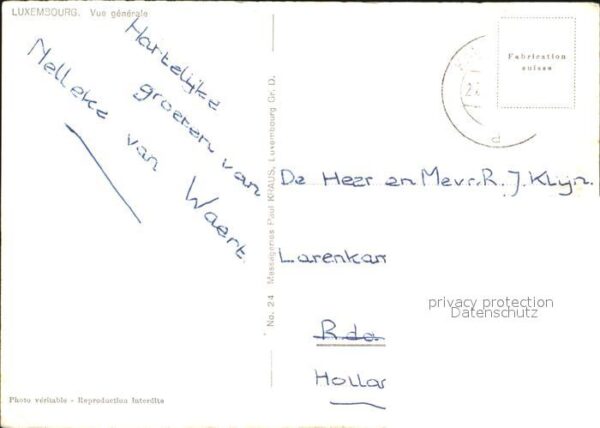 LUXEMBOURG. Vue générale
Hartelijke
groeten van
Nelleke van Waert
No. 24 Messageries Paul KRAUS, Luxembourg Gr. D.
Fabrication
suisse
d
De Heer en Mevr. R. J. Klijn.
Larenkar
Rda
Hollar
privacy protection
Datenschutz
Photo véritable - Reproduction Interdite